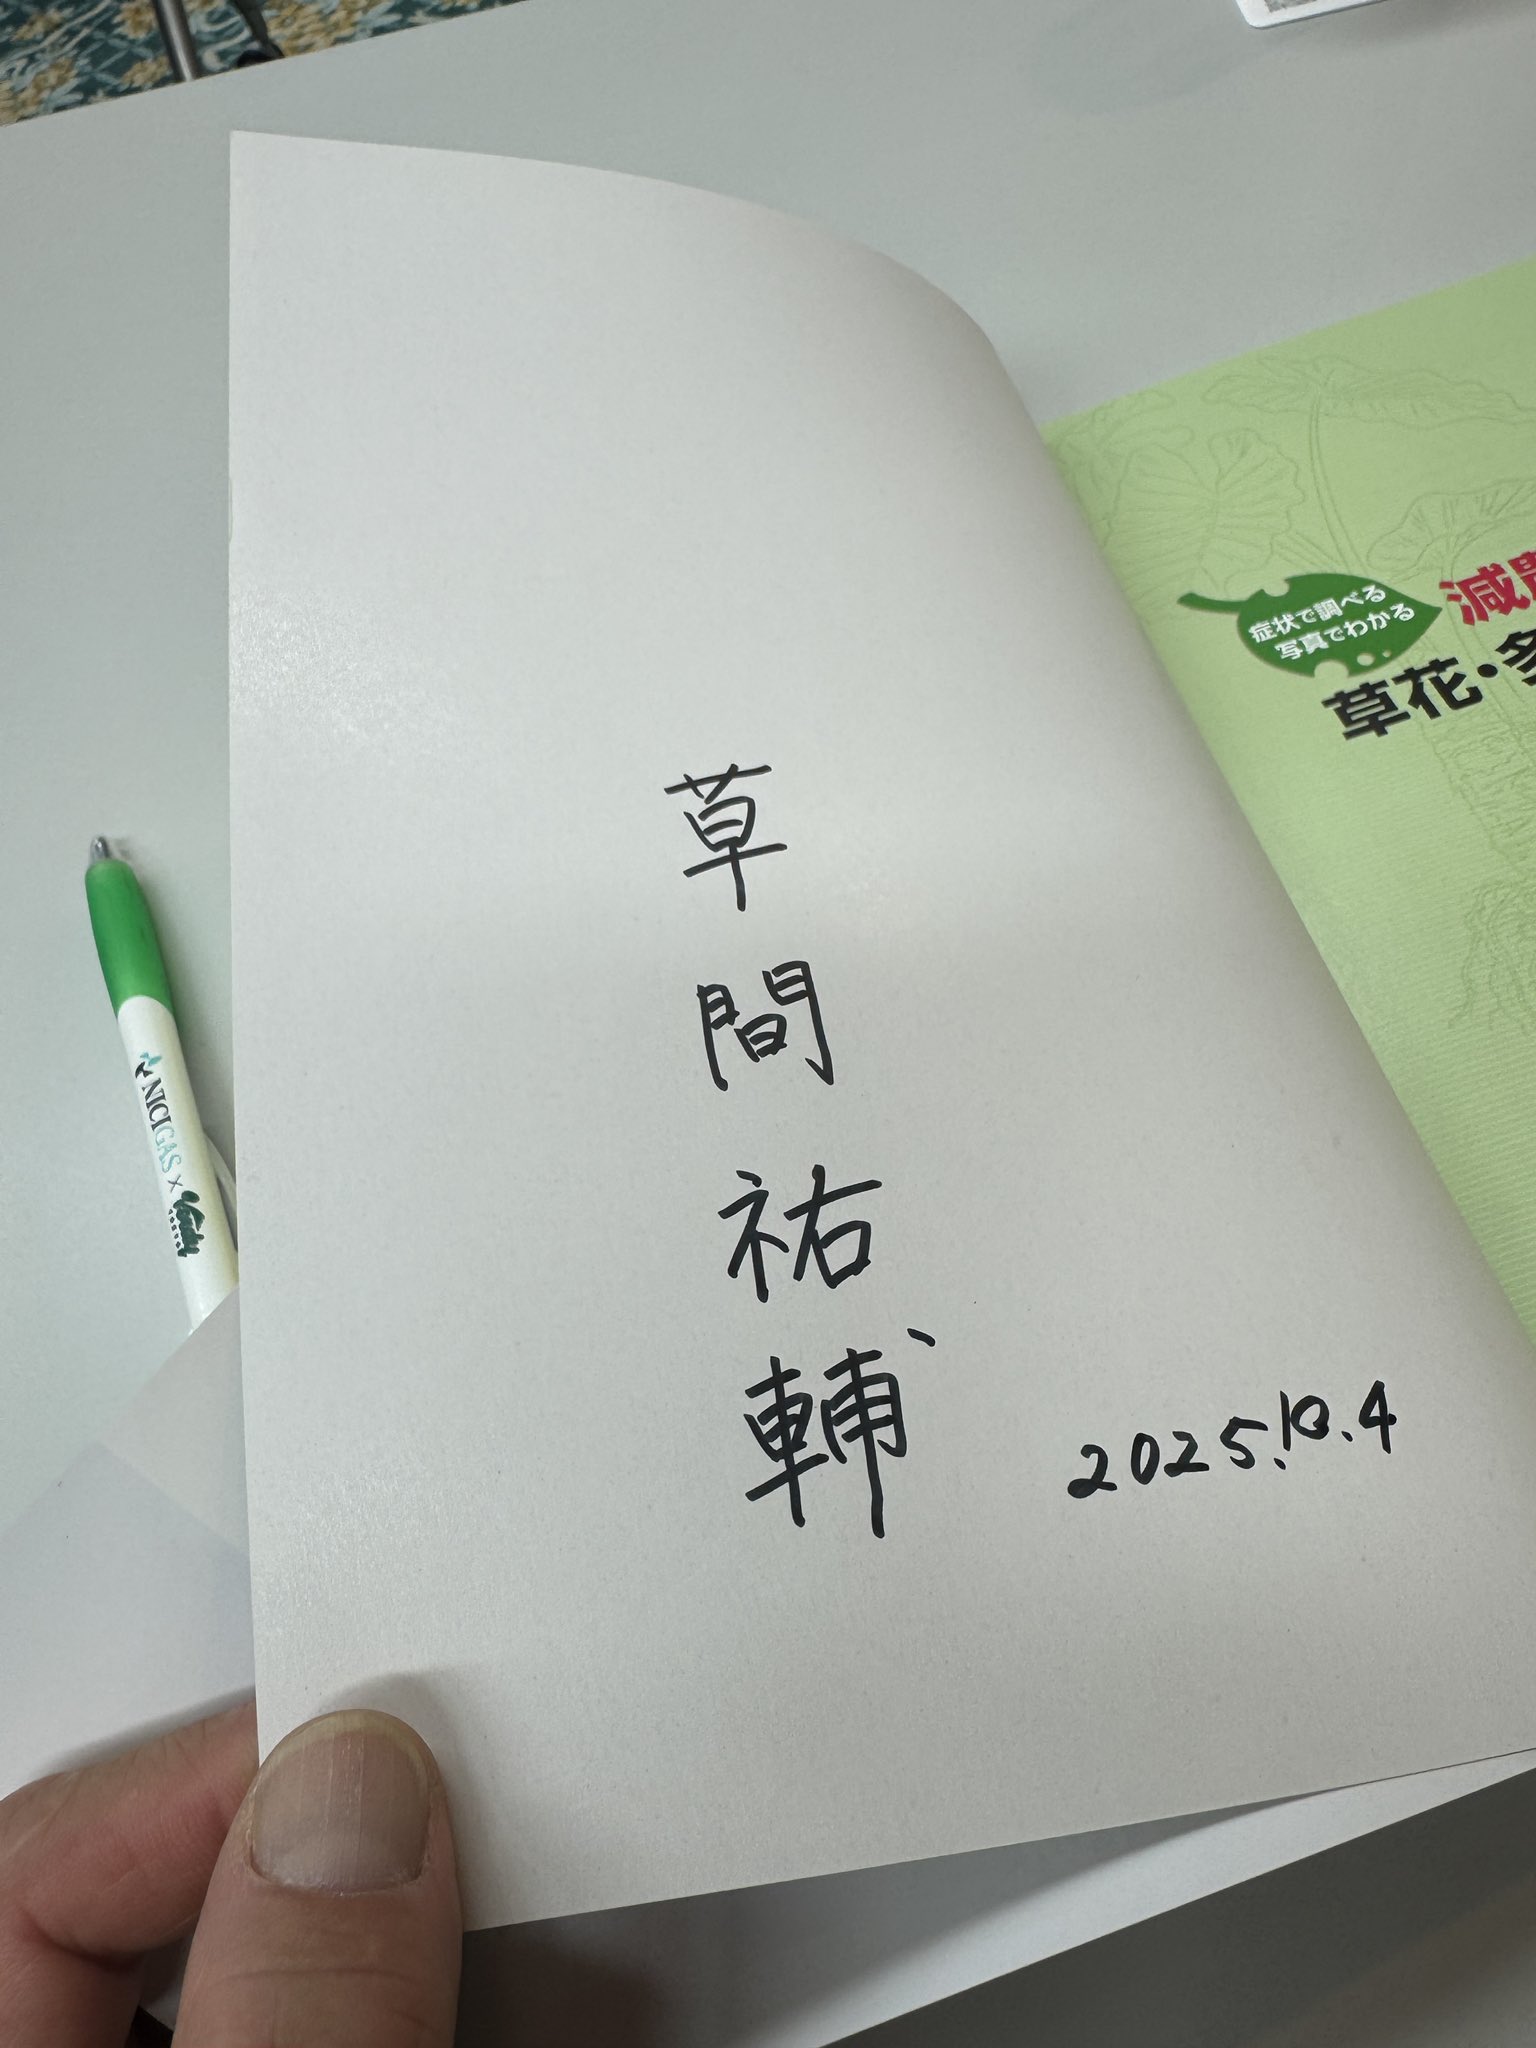 草間祐輔
2025.10.4
症状で調べる
写真でわかる
減農
草花・多
NICIGAS x Verdy